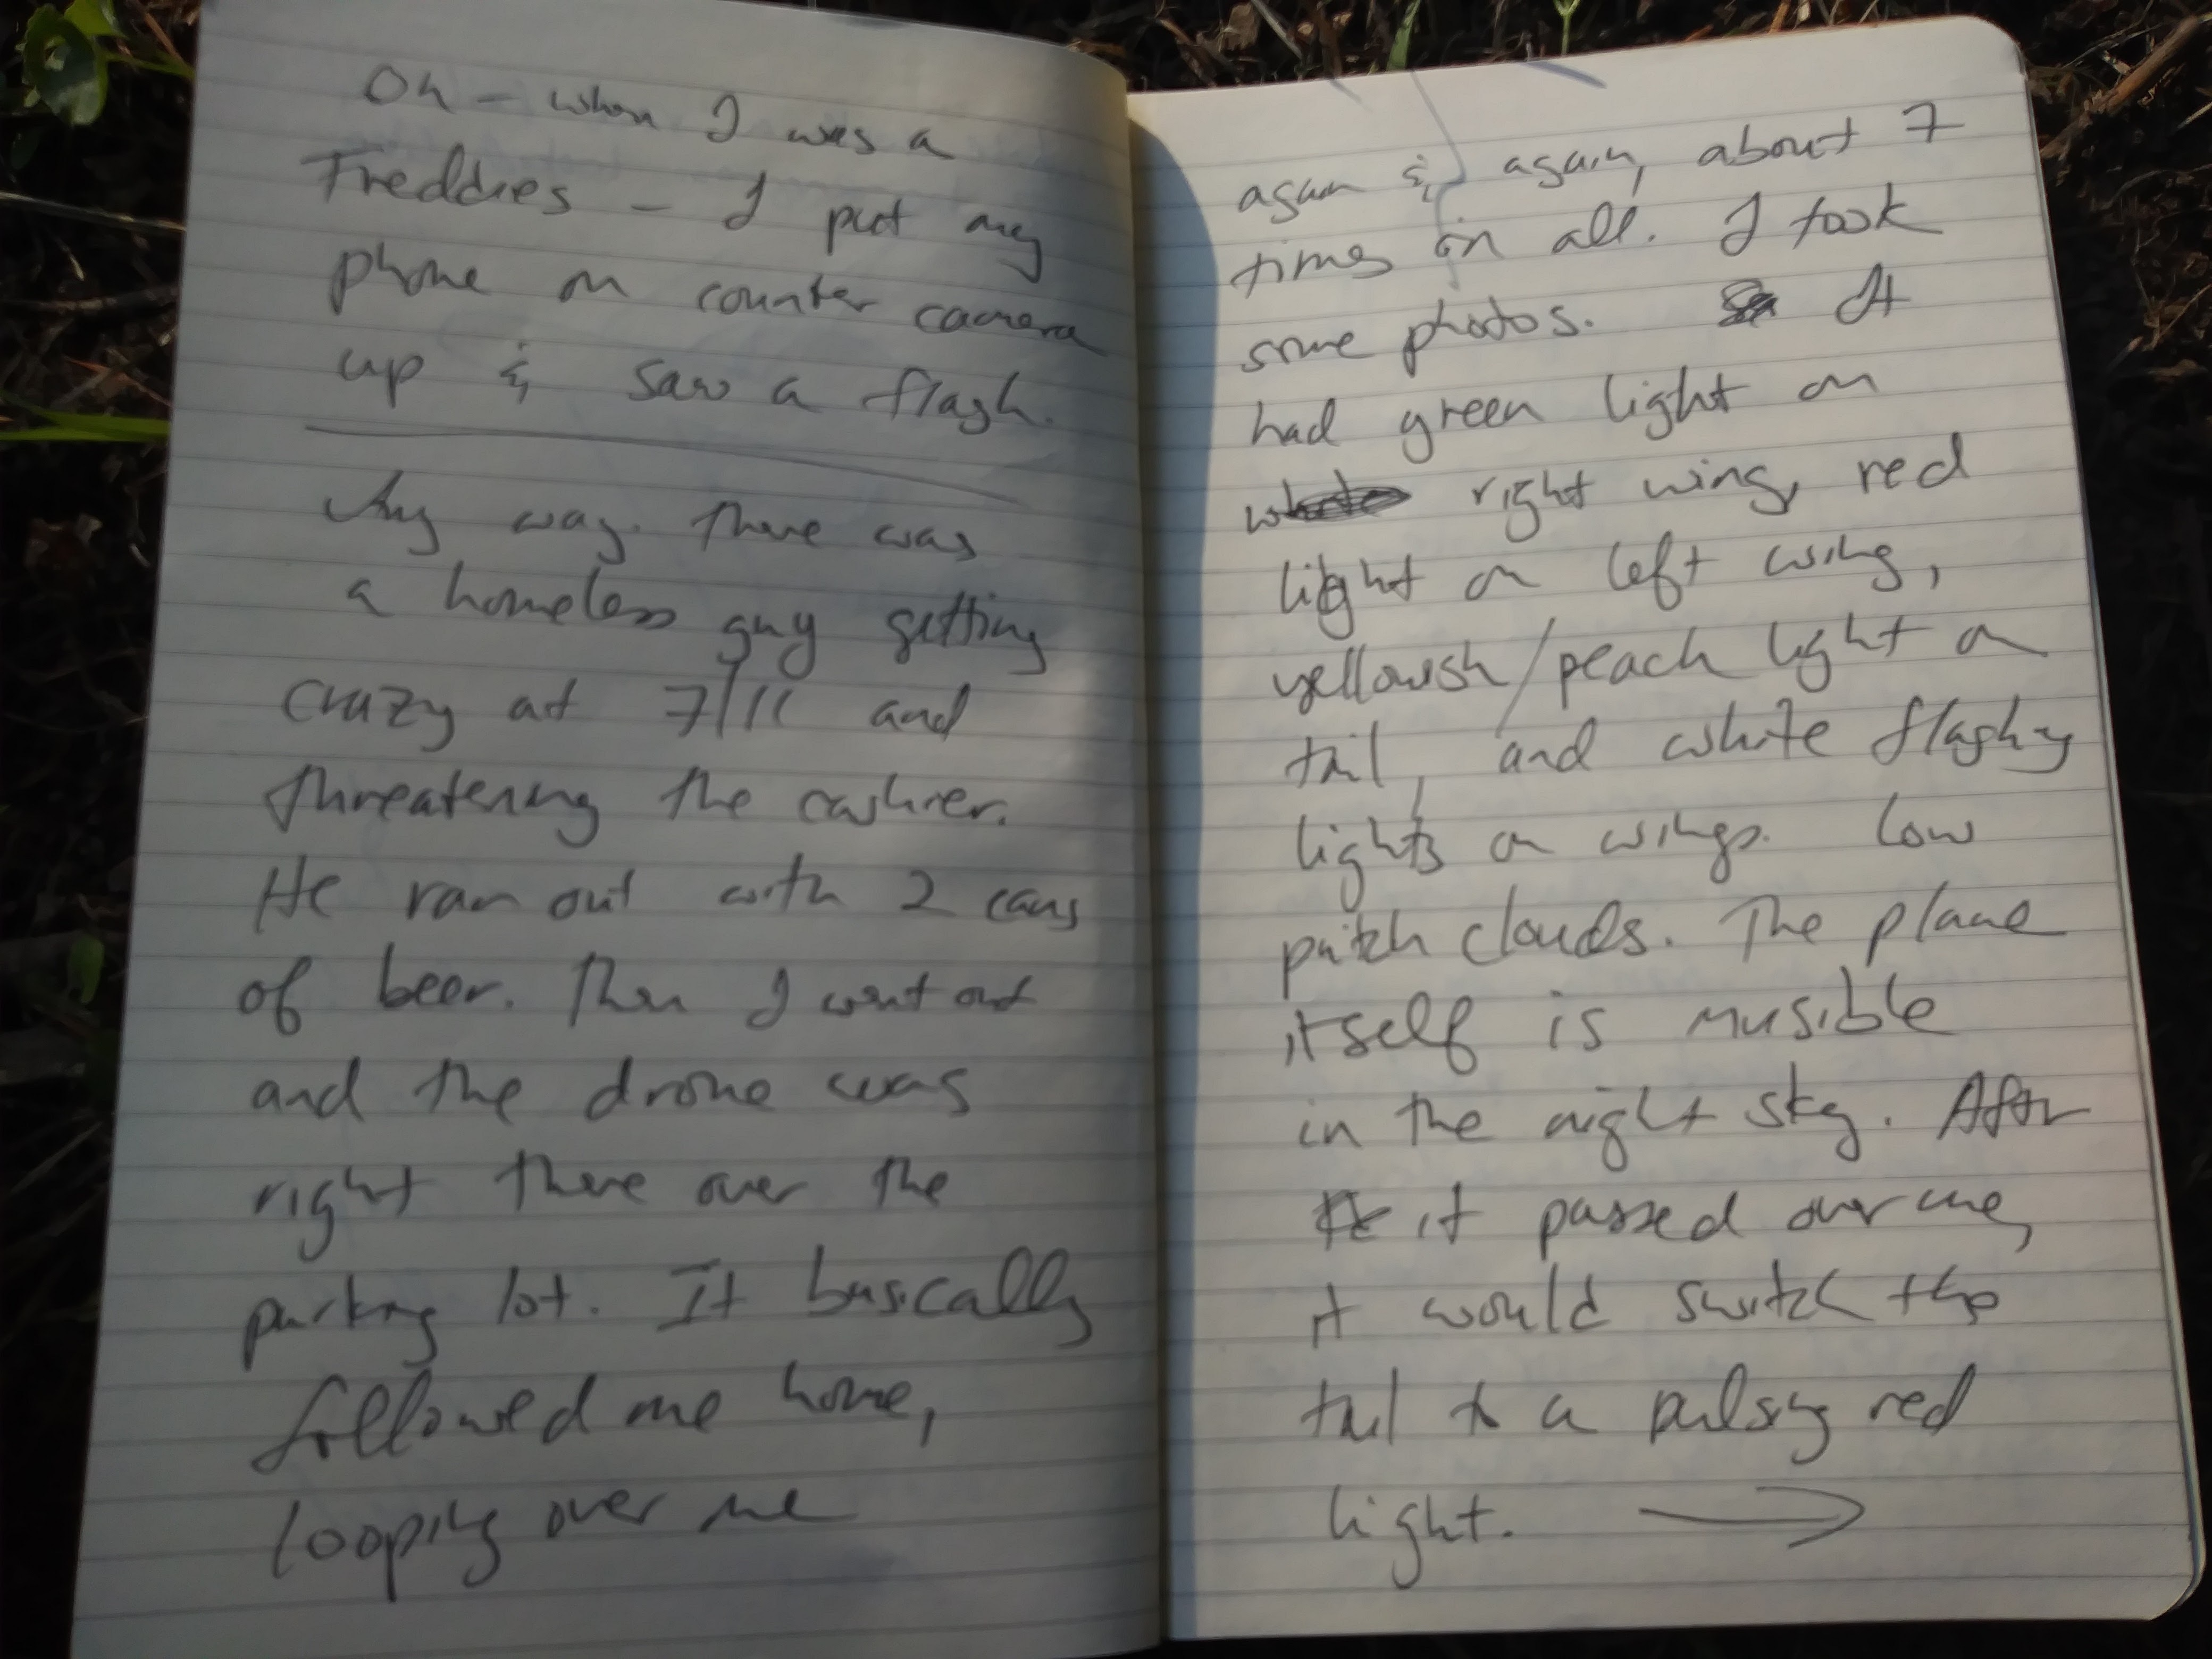 Oh – when I was a
Freddies – I put my
phone on counter camera
up & saw a flash.
Any way. There was
a homeless guy getting
crazy at 7/11 and
threatening the cashier.
He ran out with 2 cans
of beer. Then I went out
and the drone was
right there over the
parking lot. It basically
followed me home,
looping over me
again & again, about 7
times in all. I took
some photos. It
had green light on
right wing, red
light on left wing,
yellowish/peach light on
tail, and white flashing
lights on wings. Low
patch clouds. The plane
itself is invisible
in the night sky. After
it passed over me,
it would switch the
tail to a pulsing red
light. →